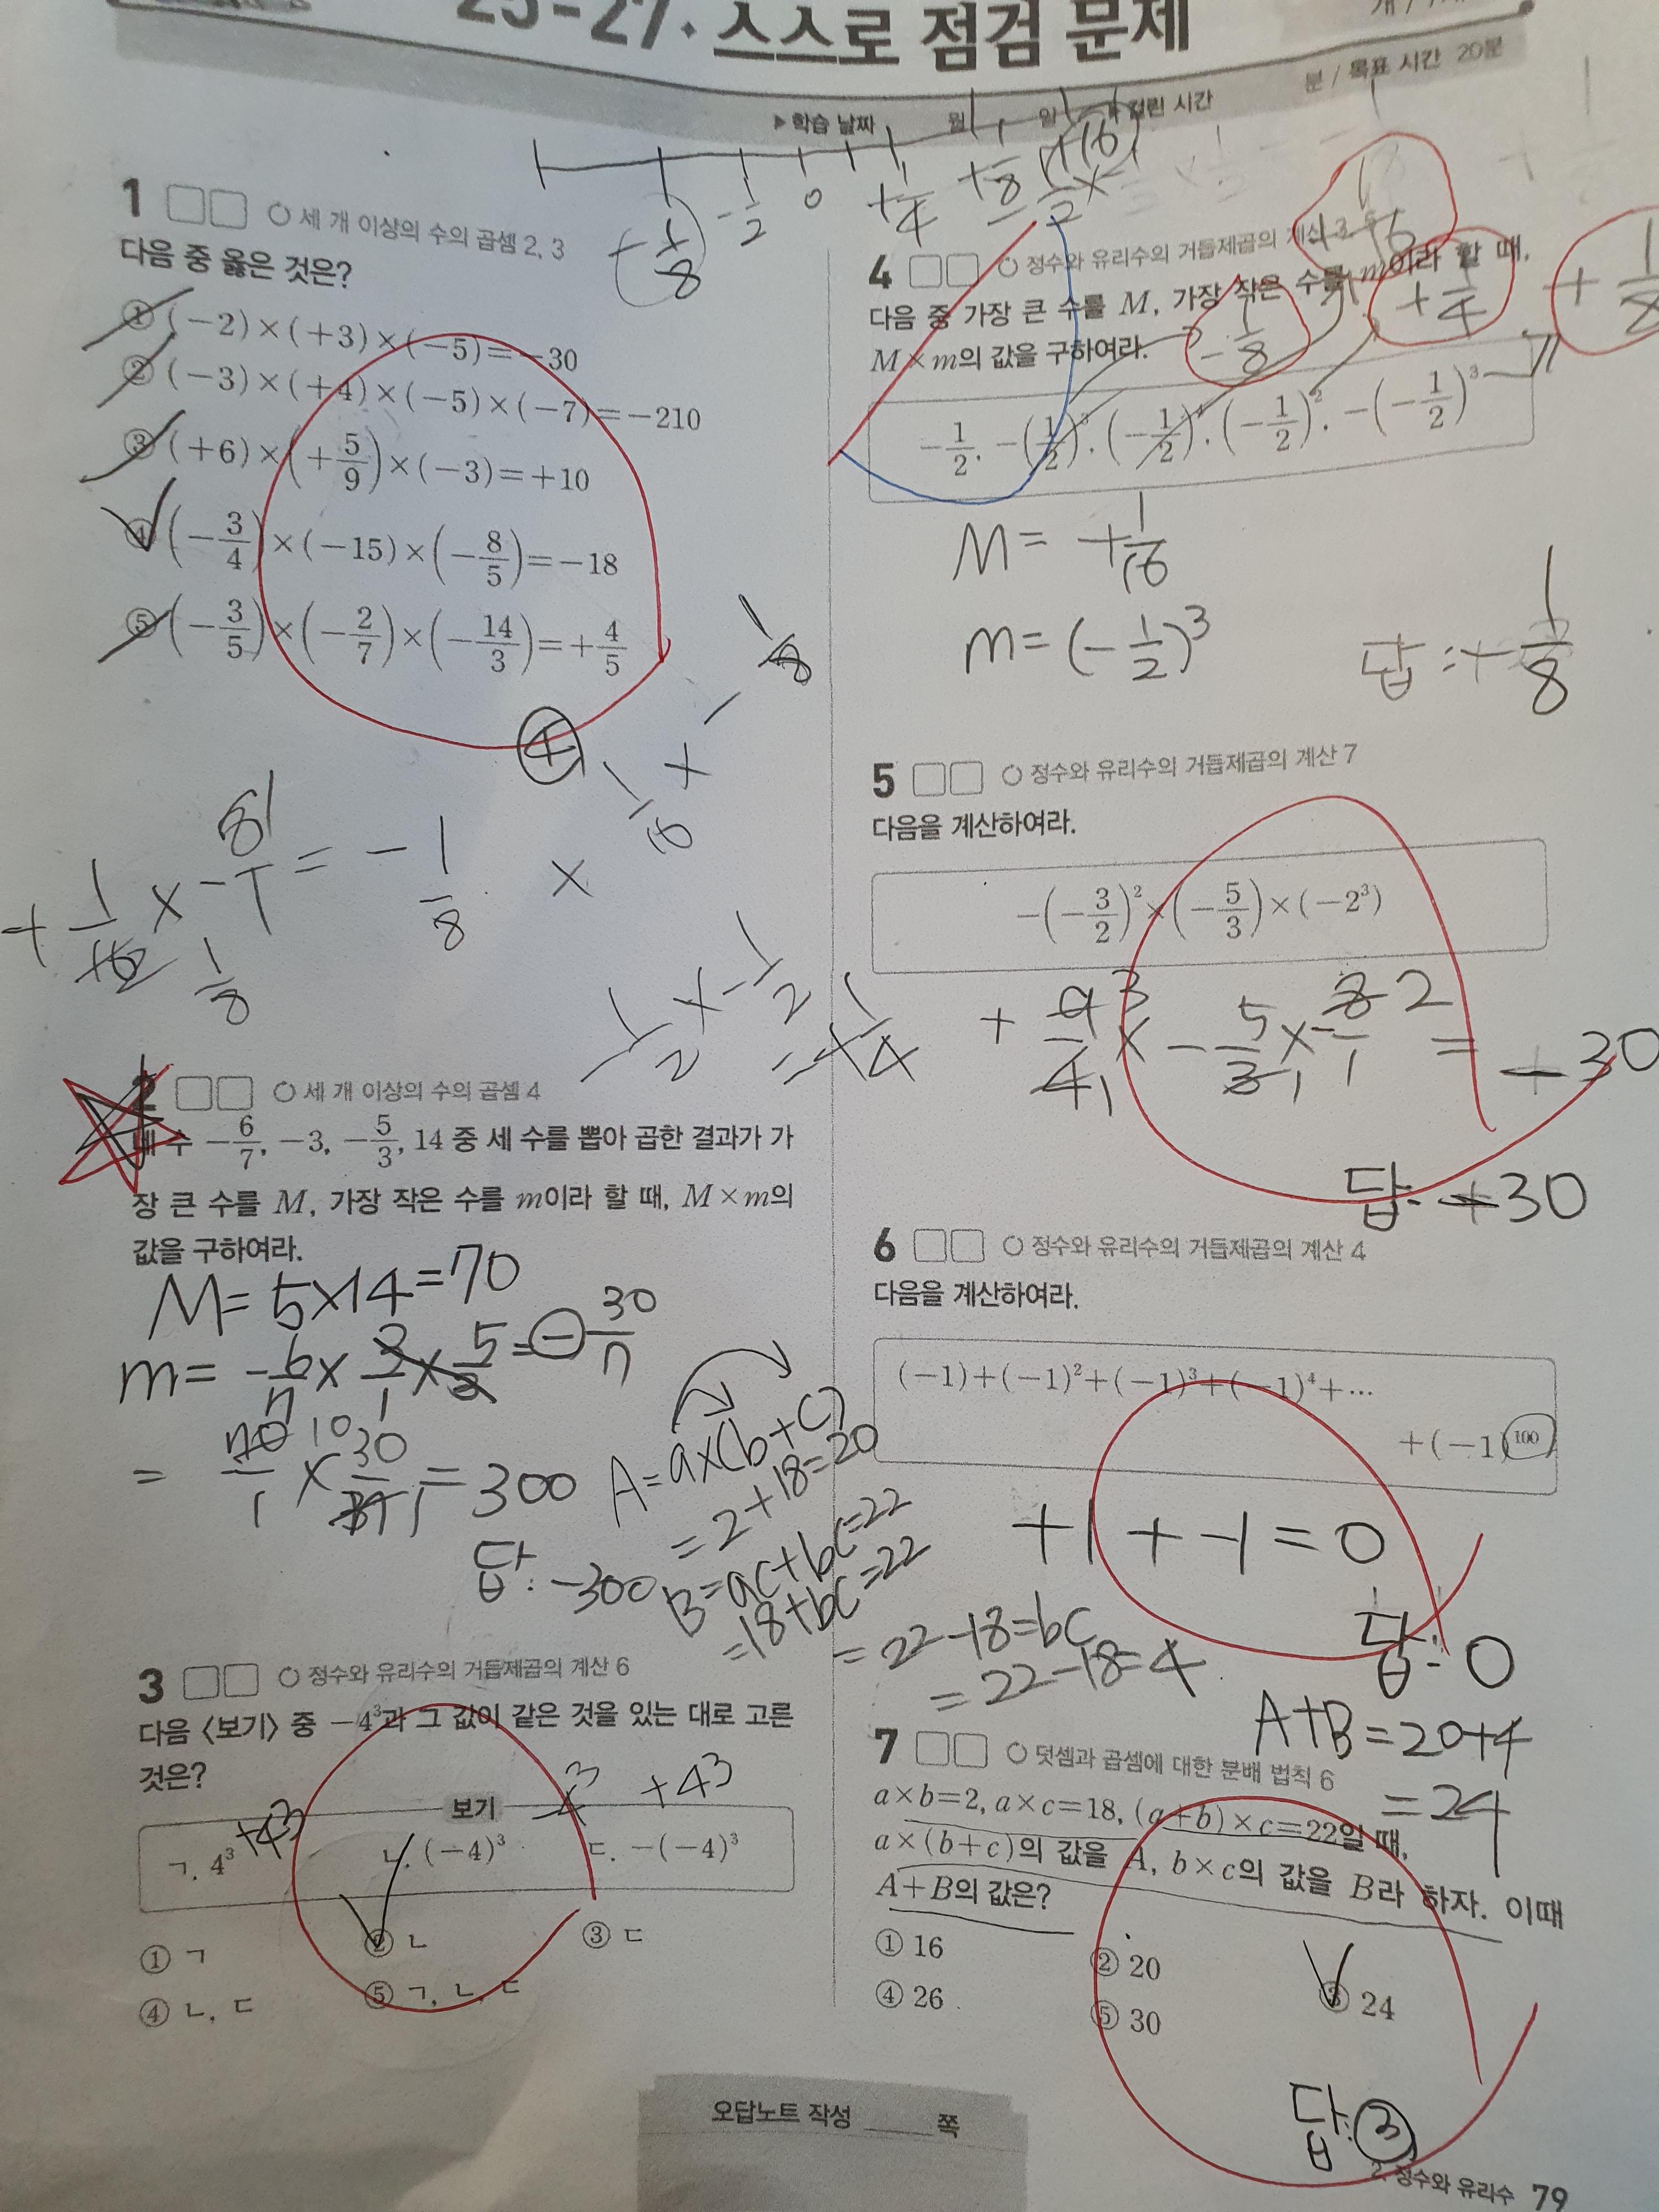 25-27. 스스로 점검 문제
▶학습 날짜 월 일 ▶걸린 시간 분 / 목표 시간 20분
1 세 개 이상의 수의 곱셈 2, 3
다음 중 옳은 것은?
① (-2)×(+3)×(-5)=-30
② (-3)×(+4)×(-5)×(-7)=-210
③ (+6)×(+5/9)×(-3)=+10
④ (-3/4)×(-15)×(-8/5)=-18
⑤ (-3/5)×(-2/7)×(-14/3)=+4/5
④
2 세 개 이상의 수의 곱셈 4
네 수 -6/7, -3, -5/3, 14 중 세 수를 뽑아 곱한 결과가 가
장 큰 수를 M, 가장 작은 수를 m이라 할 때, M×m의
값을 구하여라.
M=5×14=70
m=-6/7×3/1×5/3=-30/7
=70/1×30/7=300
답:-300
A=a×(b+c)
=2+18=20
B=ac+bc=22
=18+bc=22
=22-18=bc
=22-18=4
3 정수와 유리수의 거듭제곱의 계산 6
다음 〈보기〉 중 -4³과 그 값이 같은 것을 있는 대로 고른
것은?
보기
+4³ -4³ +4³
ㄱ. 4³ ㄴ. (-4)³ ㄷ. -(-4)³
① ㄱ ② ㄴ ③ ㄷ
④ ㄴ, ㄷ ⑤ ㄱ, ㄴ, ㄷ
4 정수와 유리수의 거듭제곱의 계산
다음 중 가장 큰 수를 M, 가장 작은 수를 m이라 할 때,
M×m의 값을 구하여라.
-1/2, -(1/2)³, (-1/2)⁴, (-1/2)², -(-1/2)³
M= +1/16
m=(-1/2)³
답:+1/8
5 정수와 유리수의 거듭제곱의 계산 7
다음을 계산하여라.
-(-3/2)²×(-5/3)×(-2³)
+9/4×-5/3×-8/1=-30
답:-30
6 정수와 유리수의 거듭제곱의 계산 4
다음을 계산하여라.
(-1)+(-1)²+(-1)³+(-1)⁴+…
+(-1)¹⁰⁰
+1+-1=0
답:0
A+B=20+4
=24
7 덧셈과 곱셈에 대한 분배 법칙 6
a×b=2, a×c=18, (a+b)×c=22일 때,
a×(b+c)의 값을 A, b×c의 값을 B라 하자. 이때
A+B의 값은?
① 16 ② 20 ③ 24
④ 26 ⑤ 30
답:③
오답노트 작성 쪽
2. 정수와 유리수 79